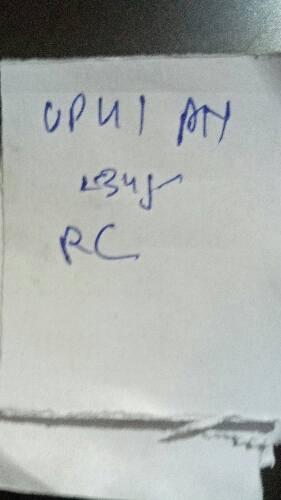 UP41 AN
2345
RC